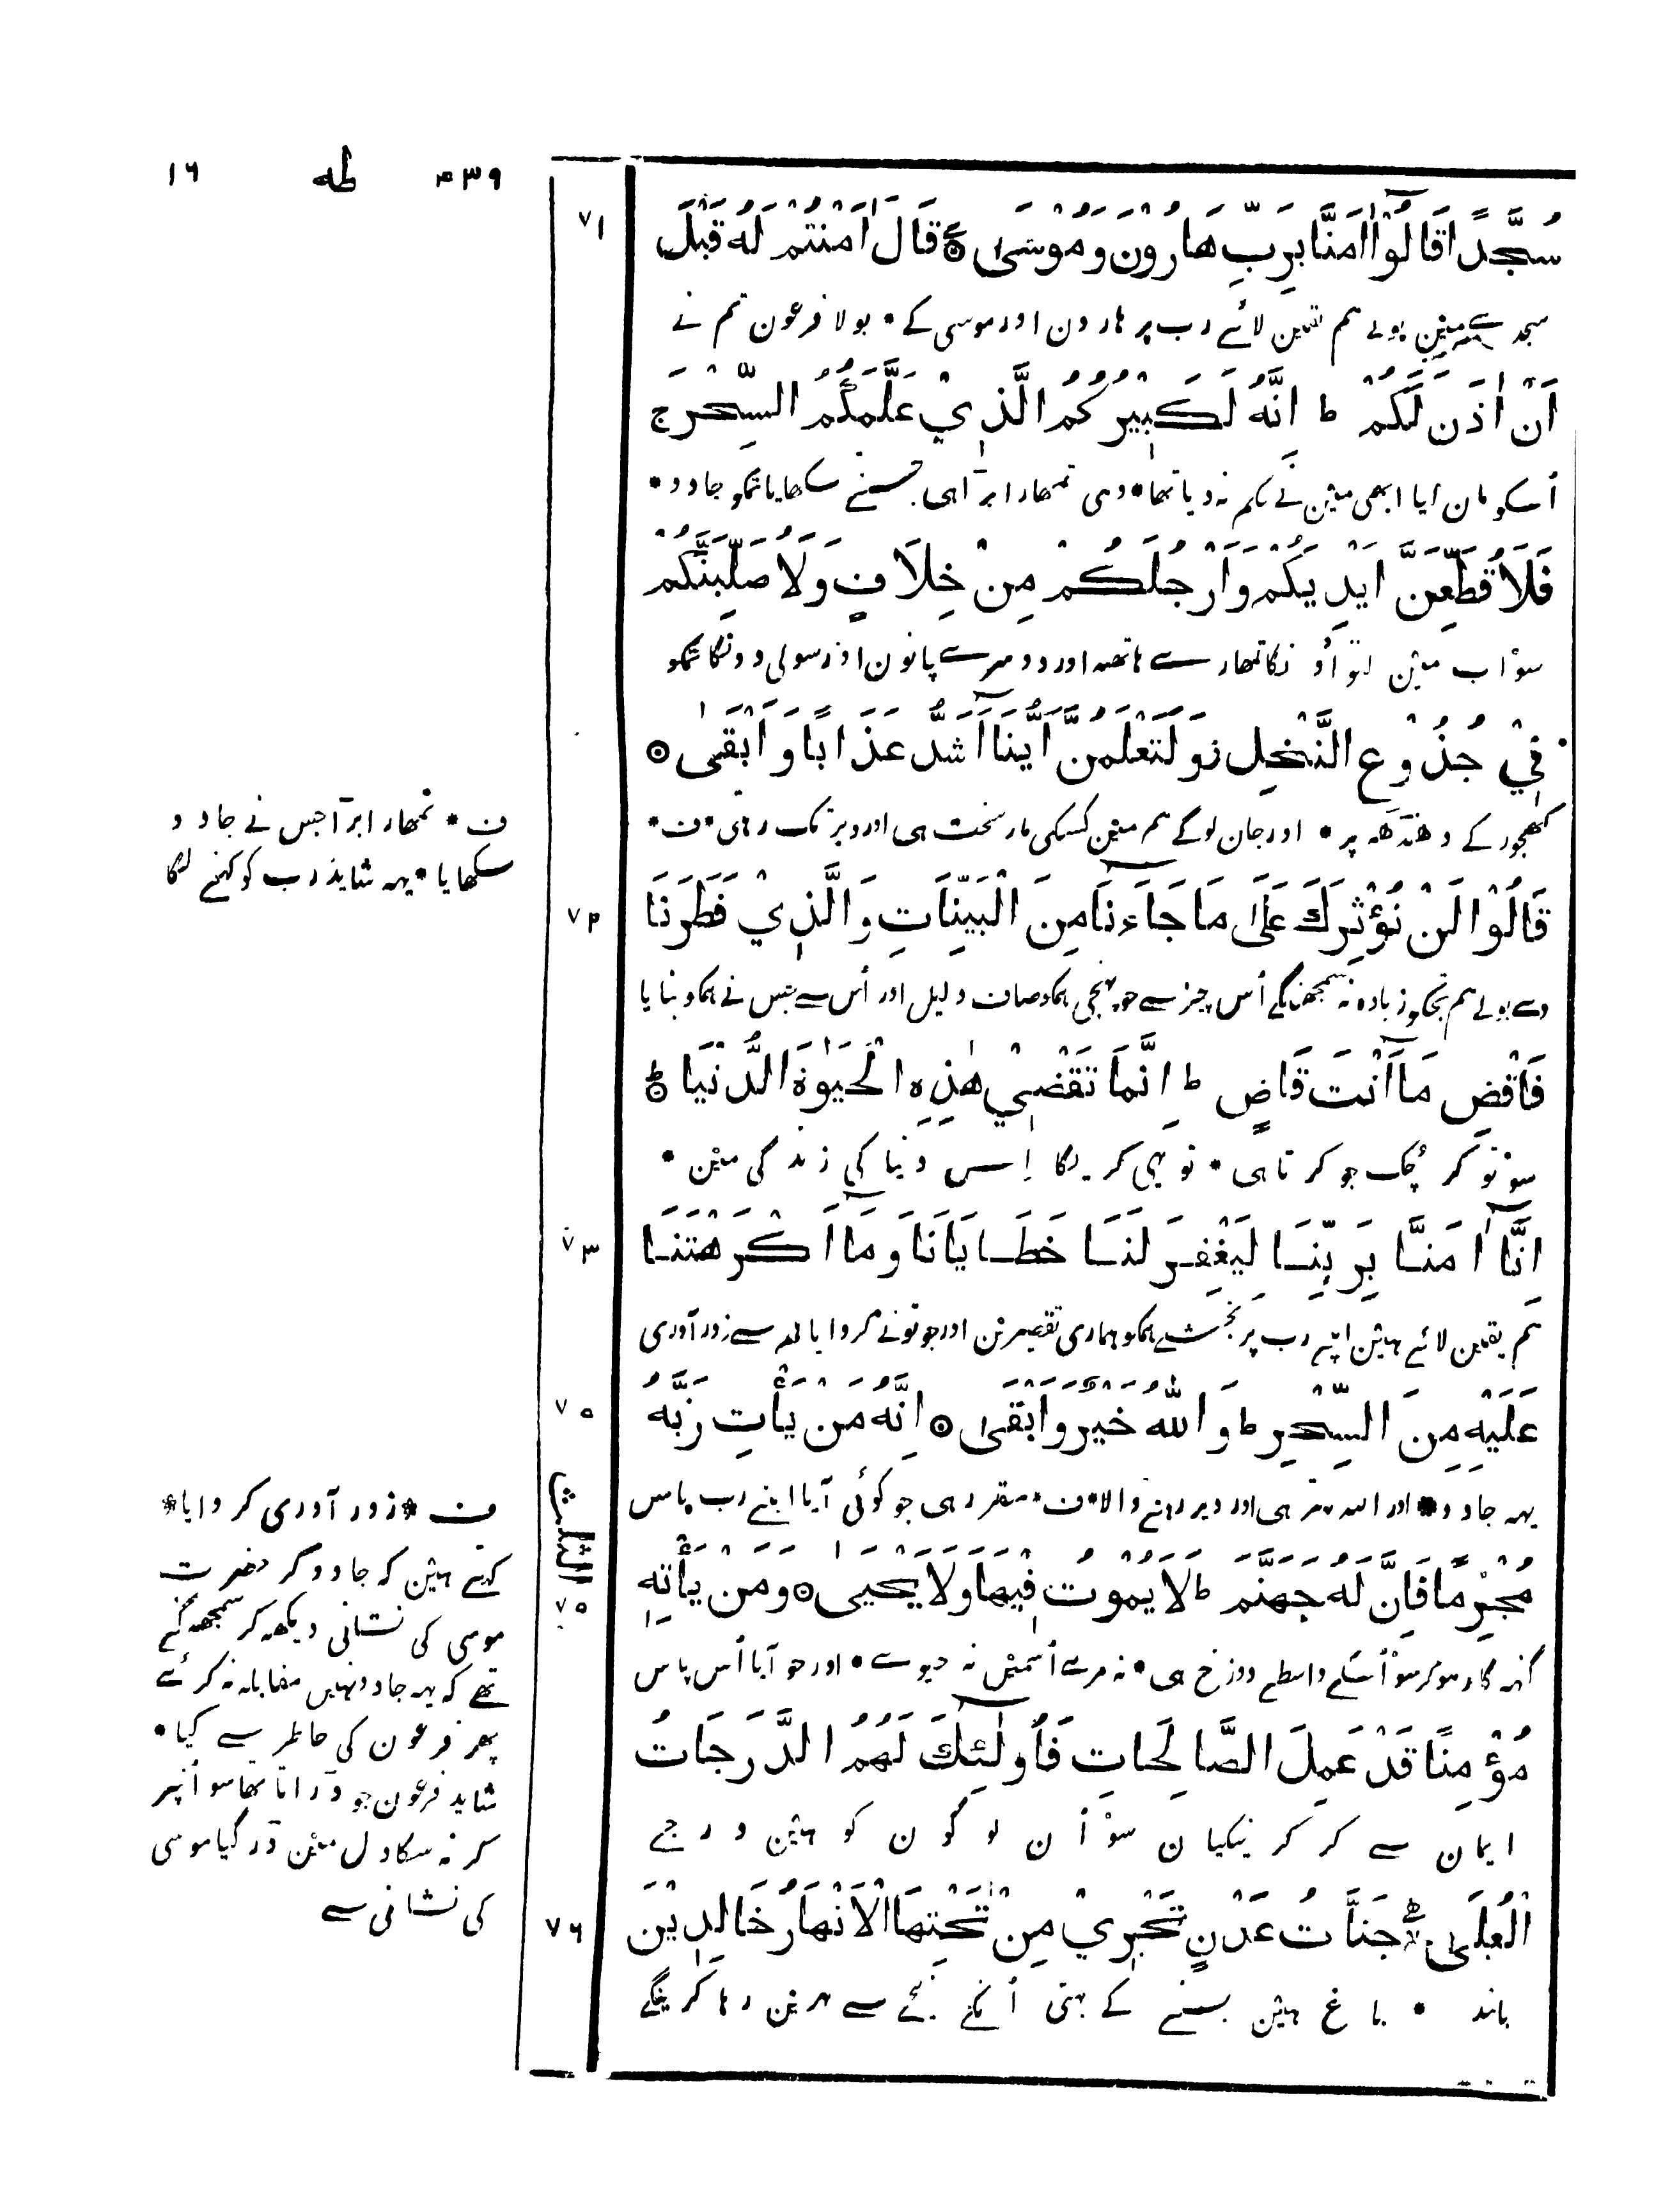 ۴۳۹ طٰه ۱۶
۷۱
سُجَّدًا قَالُوْٓا اٰمَنَّا بِرَبِّ هَارُوْنَ وَمُوْسَىٰ ۞ قَالَ اٰمَنْتُمْ لَهُ قَبْلَ
سجدے مین بولے ہم یقین لائے رب پر ہارون اور موسی کے * بولا فرعون تم نے
اَنْ اٰذَنَ لَكُمْ ط اِنَّهُ لَكَبِيْرُكُمُ الَّذِيْ عَلَّمَكُمُ السِّحْرَ ج
اُسکو مان لیا ابھی مین نے حکم نہ دیا تھا * وہی تمھارا بڑا ہی جسنے سکھایا تمکو جادو *
فَلَاُقَطِّعَنَّ اَيْدِيَكُمْ وَاَرْجُلَكُمْ مِنْ خِلَافٍ وَلَاُصَلِّبَنَّكُمْ
سو اب مین کتواونگا تمھارے ہاتھہ اور دوسرے پانون اور سولی دونگا تمکو
فِيْ جُذُوْعِ النَّخْلِ ز وَلَتَعْلَمُنَّ اَيُّنَا اَشَدُّ عَذَابًا وَاَبْقٰى ۞
کھجور کے دھنڈھہ پر * اور جان لوگے ہم مین کسکی مار سخت ہی اور دیر تک رہی * ف *
ف * تمھارا بڑا جس نے جادو
سکھایا * یہہ شاید رب کو کہنے لگا
۷۲
قَالُوْا لَنْ نُؤْثِرَكَ عَلَىٰ مَا جَاءَنَا مِنَ الْبَيِّنَاتِ وَالَّذِيْ فَطَرَنَا
وے بولے ہم تجکو زیادہ نہ سمجھنگے اُس چیز سے جو پہنچی ہمکو صاف دلیل اور اُس سے جس نے ہمکو بنایا
فَاقْضِ مَآ اَنْتَ قَاضٍ ط اِنَّمَا تَقْضِيْ هٰذِهِ الْحَيٰوةَ الدُّنْيَا ۞ ط
سو تو کر چُک جو کرتا ہی * تو یہی کریگا اِس دنیا کی زندگی مین *
۷۳
اِنَّآ اٰمَنَّا بِرَبِّنَا لِيَغْفِرَ لَنَا خَطَايَانَا وَمَآ اَكْرَهْتَنَا
ہم یقین لائے ہین اپنے رب پر بخشے ہمکو ہماری تقصیرین اور جو تونے کروایا ہم سے زور آوری
۷۵
عَلَيْهِ مِنَ السِّحْرِ ط وَاللّٰهُ خَيْرٌ وَاَبْقَىٰ ۞ اِنَّهُ مَنْ يَأْتِ رَبَّهُ
یہہ جادو * اور اللہ بہتر ہی اور دیر رہنے والا * ف * مقرر ہی جو کوئی آیا اپنے رب پاس
الثلث
۷۵
مُجْرِمًا فَاِنَّ لَهُ جَهَنَّمَ ط لَا يَمُوْتُ فِيْهَا وَلَا يَحْيٰى ۞ وَمَنْ يَأْتِهِ
گنہگار ہوکر سو اُسکے واسطے دوزخ ہی * نہ مرے اُسمین نہ جیوے * اور جو آیا اُس پاس
مُؤْمِنًا قَدْ عَمِلَ الصَّالِحَاتِ فَاُولٰٓئِكَ لَهُمُ الدَّرَجَاتُ
ایمان سے کر کر نیکیان سو اُن لوگون کو ہین درجے
۷۶
الْعُلَىٰ ۞ جَنَّاتُ عَدْنٍ تَجْرِيْ مِنْ تَحْتِهَا الْاَنْهَارُ خَالِدِيْنَ
بلند * باغ ہین بسنے کے بہتی اُنکے نیچے سے نہرین رہا کرینگے
ف * زور آوری کروایا *
کہتے ہین کہ جادوگر حضرت
موسی کی نشانی دیکھہ کر سمجھہ گئے
تھے کہ یہہ جادو نہین مقابلہ نہ کرئے
پھر فرعون کی خاطر سے کیا *
شاید فرعون جو ڈراتا تھا سو اُنپر
کر نہ سکا دل مین ڈر گیا موسی
کی نشانی سے